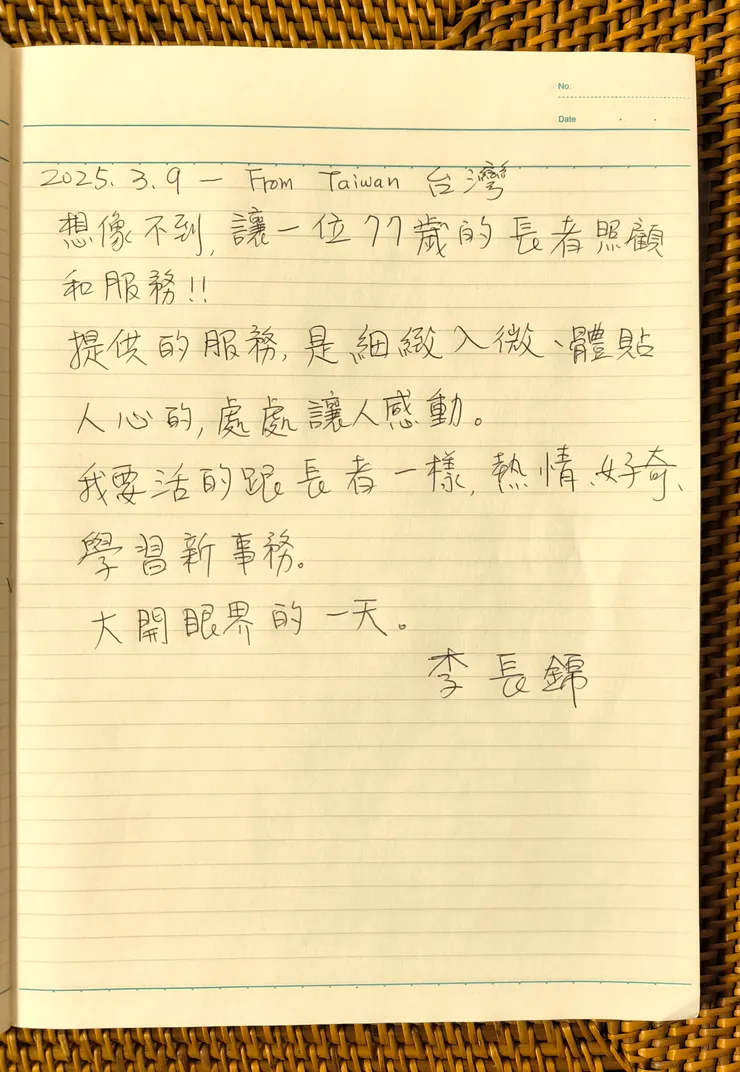 No.
Date
2025. 3. 9 — From Taiwan 台灣
想像不到, 讓一位77歲的長者照顧
和服務!!
提供的服務, 是細緻入微、體貼
人心的, 處處讓人感動。
我要活的跟長者一樣, 熱情、好奇、
學習新事務。
大開眼界的一天。
李長錦